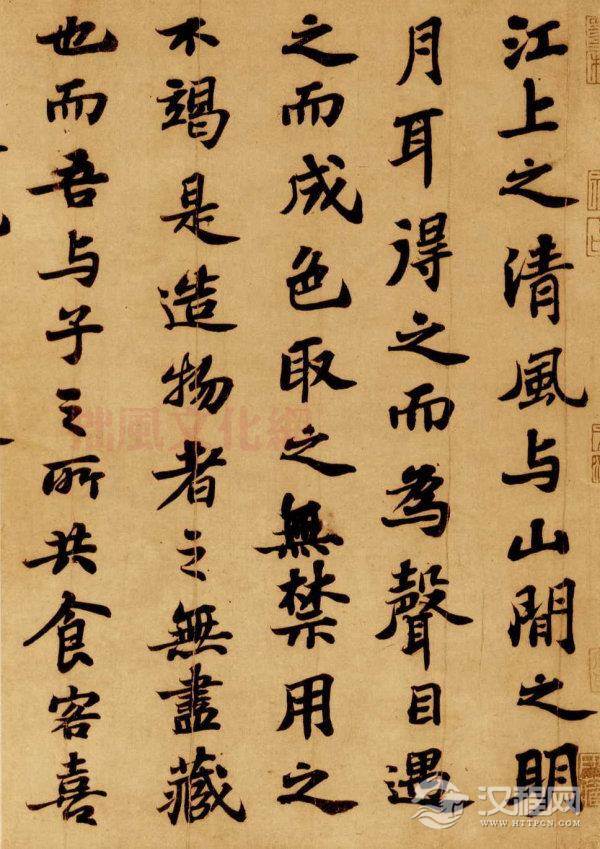 江上之清風与山間之明
月耳得之而為聲目遇
之而成色取之無禁用之
不竭是造物者之無盡藏
也而吾与子之所共食客喜
汉程网
WWW.HTTPCN.COM